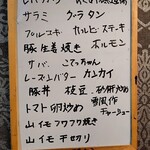 サラミ グラタン
プルコギ カルビステーキ
豚生姜焼き ホルモン
サバ こてっちゃん
レーズンバター カンカイ
豚丼 枝豆 砂肝炒め
トマト卵炒め 豊風作チャーシュー
山イモフワフワ焼き
山イモ千切り